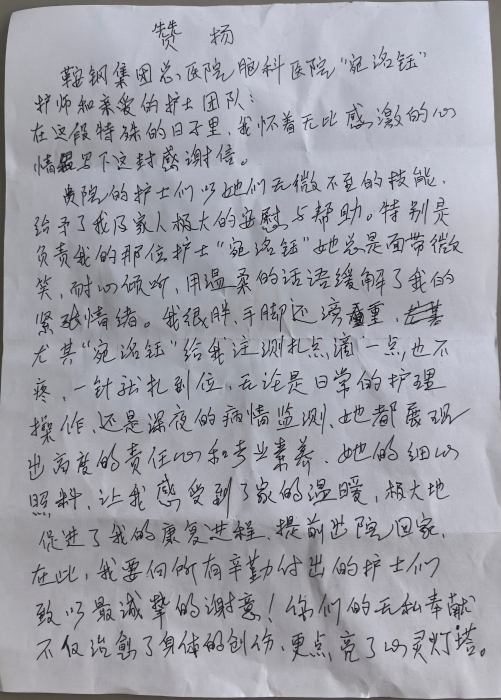 赞扬
鞍钢集团总医院脑科医院“宛洺钰”
护师和亲爱的护士团队:
在这段特殊的日子里,我怀着无比感激的心
情写下这封感谢信。
贵院的护士们以她们无微不至的技能,
给予了我及家人极大的安慰与帮助。特别是
负责我的那位护士“宛洺钰”她总是面带微
笑,耐心倾听,用温柔的话语缓解了我的
紧张情绪。我很胖,手脚还滂重,
尤其“宛洺钰”给我注测扎点滴一点也不
疼,一针就扎到位,无论是日常的护理
操作,还是深夜的病情监测,她都展现
出高度的责任心和专业素养,她的细心
照料,让我感受到了家的温暖,极大地
促进了我的康复进程,提前出院回家,
在此,我要向所有辛勤付出的护士们
致以最诚挚的谢意!你们的无私奉献
不仅治愈了身体的创伤,更点亮了心灵灯塔。